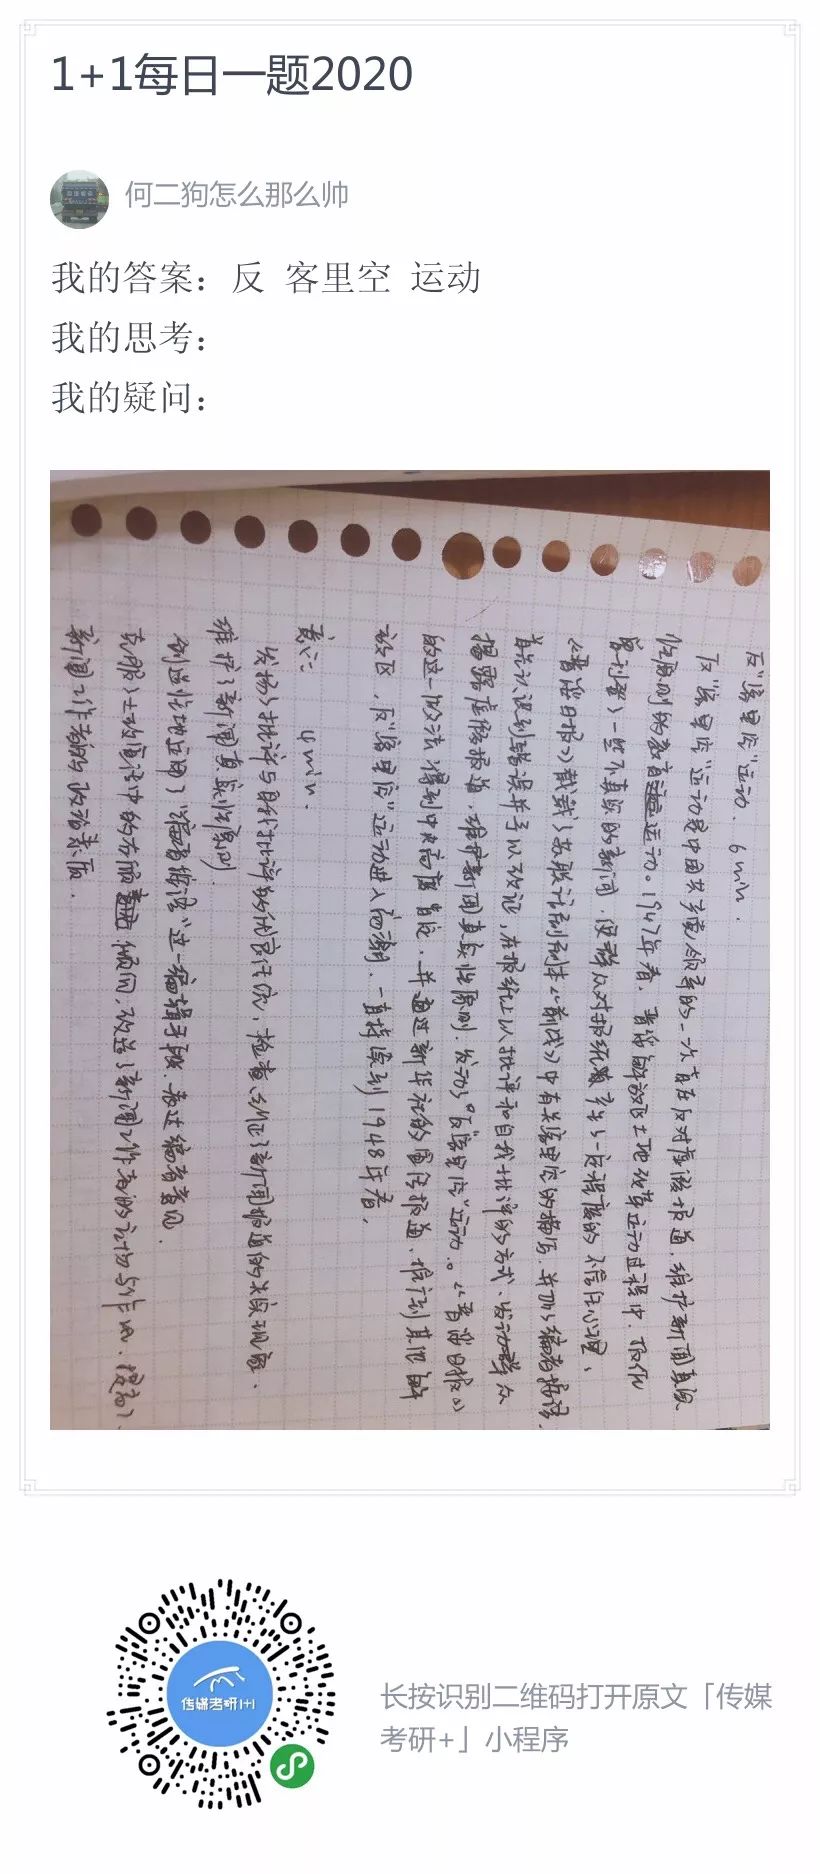 1+1每日一题2020
何二狗怎么那么帅
我的答案：反 客里空 运动
我的思考：
我的疑问：
反“客里空”运动. 6min.
反“客里空”运动是中国共产党领导的一次旨在反对虚假报道，维护新闻真实
性原则的教育运动。1947年春，晋绥解放区土地改革运动过程中，
一些不真实的新闻，使群众对报纸产生了一定程度的不信任心理，
《晋绥日报》载了苏联《前线》中有关客里空的描写，并加了编者按语，
认识到错误并予以改正，在报纸上以批评和自我批评的方式，发动群众
揭露虚假报道，维护新闻真实性原则，发动了“反客里空”运动。《晋绥日报》
的这一做法得到中央高度肯定，并通过新华社的宣传报道，推行到其他解
放区，反“客里空”运动进入高潮，一直持续到1948年春。
意义： 4min.
发扬了批评与自我批评的优良作风，检查、纠正了新闻报道的失实现象，
维护了新闻真实性原则。
创造性地运用了“编者按语”这一编辑手段，表达编者意见。
克服了土改宣传中的右倾倾向，改进了新闻工作者的文风与作风，提高了
新闻工作者的政治素质。
传媒考研1+1
长按识别二维码打开原文「传媒
考研+」小程序